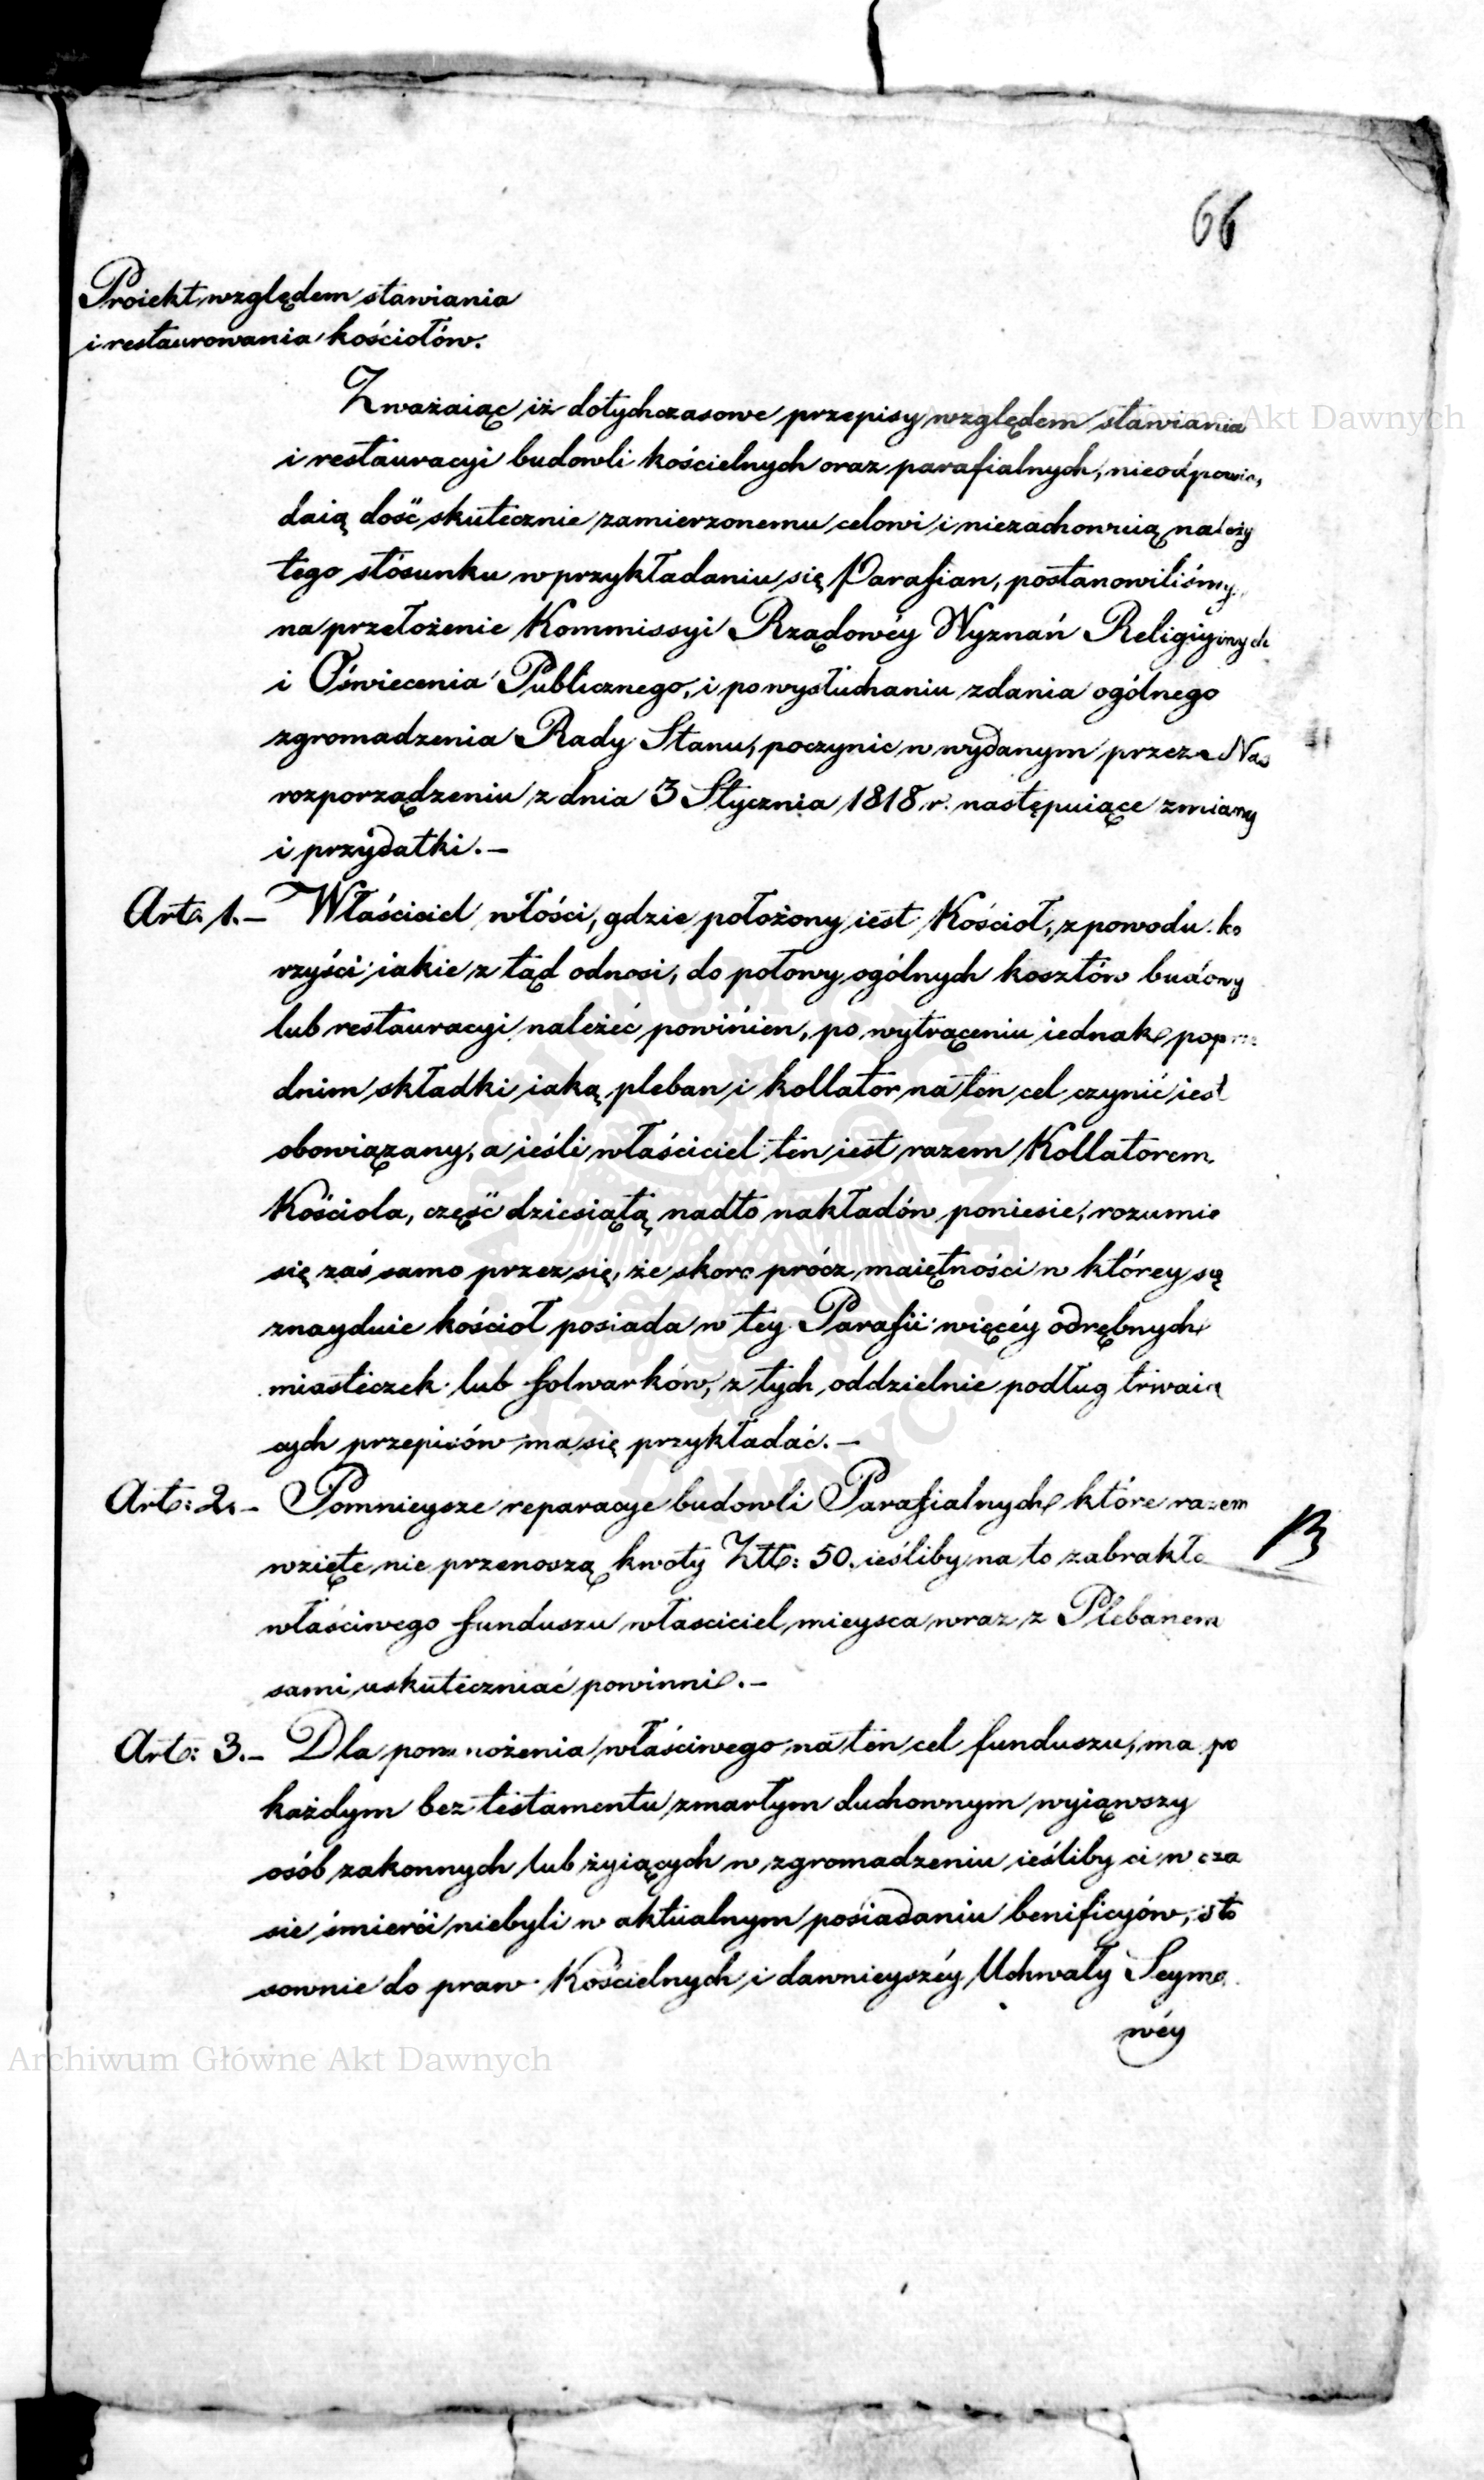 66
Proiekt względem stawiania
i restaurowania kościołów.
Zważaiąc iż dotychczasowe przepisy względem stawiania
i restauracyi budowli kościelnych oraz parafialnych, nieodpowia,
daią dość skutecznie zamierzonemu celowi i niezachowuią należy
tego stósunku w przykładaniu się Parafian, postanowiliśmy
na przełożenie Kommissyi Rządowéy Wyznań Religiynych
i Oświecenia Publicznego, i po wysłuchaniu zdania ogólnego
zgromadzenia Rady Stanu, poczynić w wydanym przez Nas
rozporządzeniu z dnia 3 Stycznia 1818 r. następuiące zmiany
i przydatki.—
Art: 1.— Właściciel włości, gdzie położony iest Kościoł, z powodu ko
rzyści iakie z tąd odnosi, do połowy ogólnych kosztów budowy
lub restauracyi należéć powinien, po wytrąceniu iednak poprze
dnim składki iaką pleban i kollator na ten cel czynić iest
obowiązany, a ieśli właściciel ten iest razem Kollatorem
Kościoła, część dziesiątą nadto nakładów poniesie, rozumie
się zaś samo przez się, że skoro prócz maiętności w którey się
znayduie kościoł posiada w tey Parafii więcéy odrębnych
miasteczek lub folwarków, z tych oddzielnie podług trwaią
cych przepisów ma się przykładać.—
Art: 2.— Pomnieysze reparacye budowli Parafialnych które razem
wzięte nie przenoszą kwoty Złt: 50. ieśliby na to zabrakło
właściwego funduszu własciciel mieysca wraz z Plebanem
sami uskuteczniać powinni.—
Art: 3.— Dla pomnożenia właściwego na ten cel funduszu, ma po
każdym bez testamentu zmarłym duchownym wyiąwszy
osób zakonnych lub żyiących w zgromadzeniu ieśliby ci w cza
sie śmierci niebyli w aktualnym posiadaniu benificyów, sto
sownie do praw Kościelnych i dawnieyszéy Uchwały Seymo
wéy
Archiwum Główne Akt Dawnych
Archiwum Główne Akt Dawnych